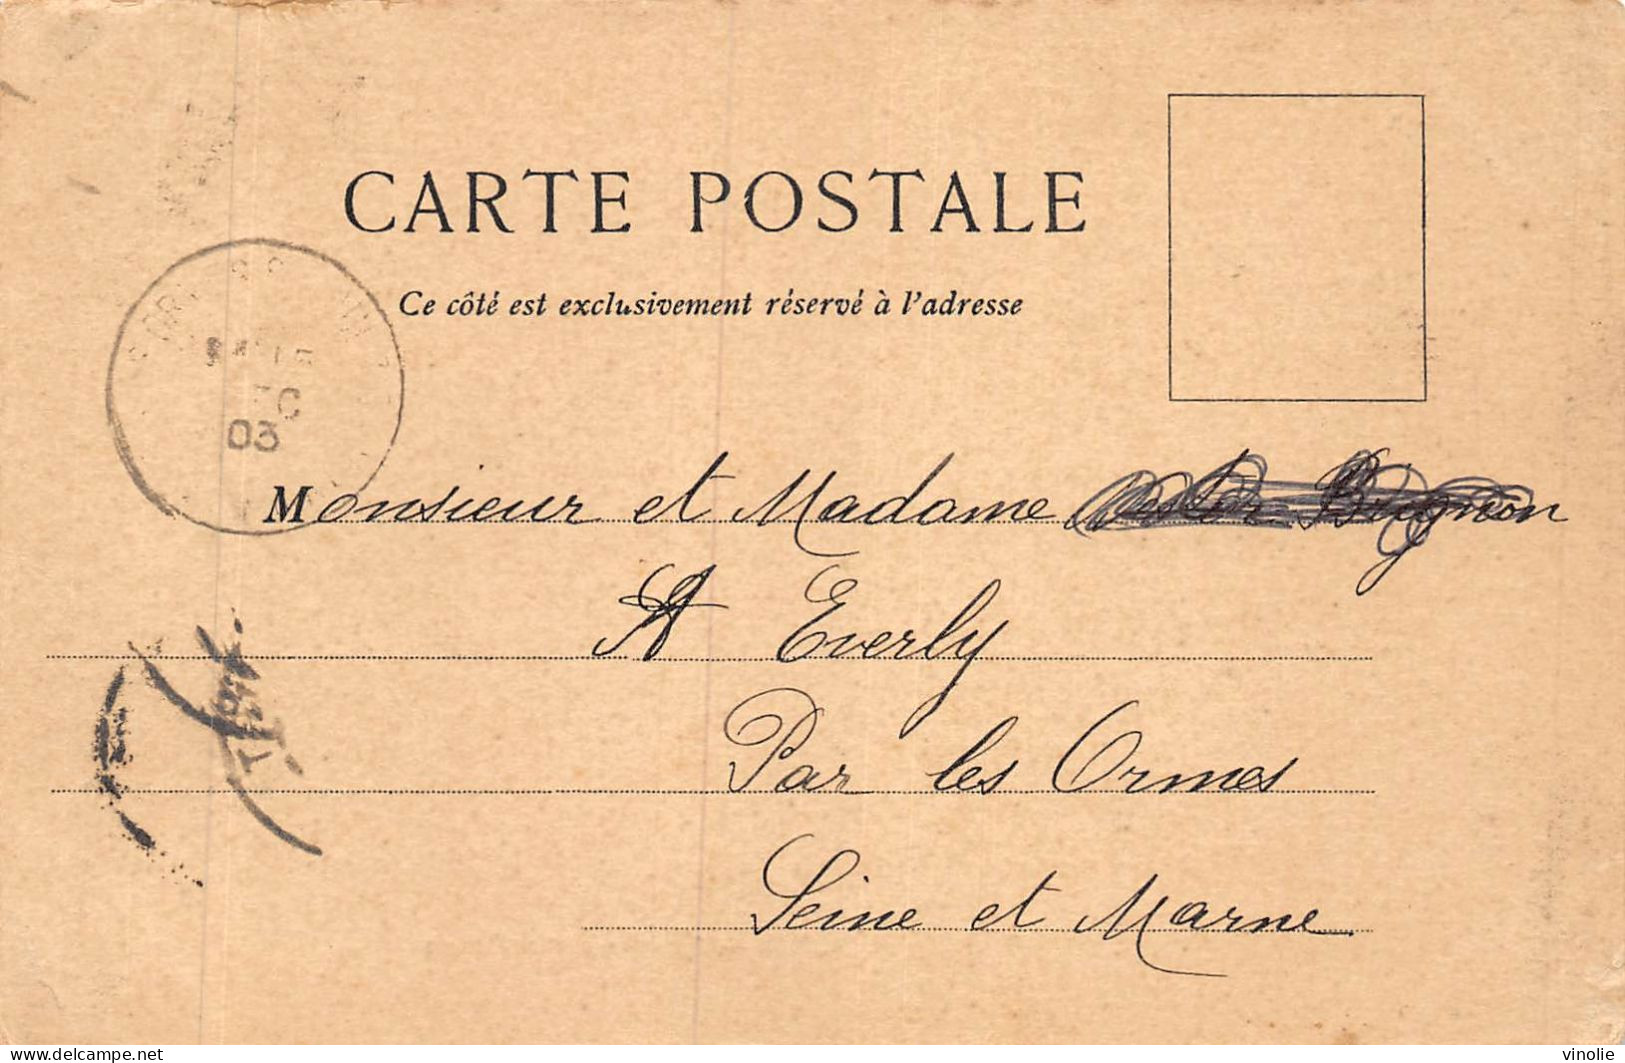 CARTE POSTALE
Ce côté est exclusivement réservé à l'adresse
03
Monsieur et Madame Nestor Brignon
A Everly
Par les Ormes
Seine et Marne
www.delcampe.net
vinolie